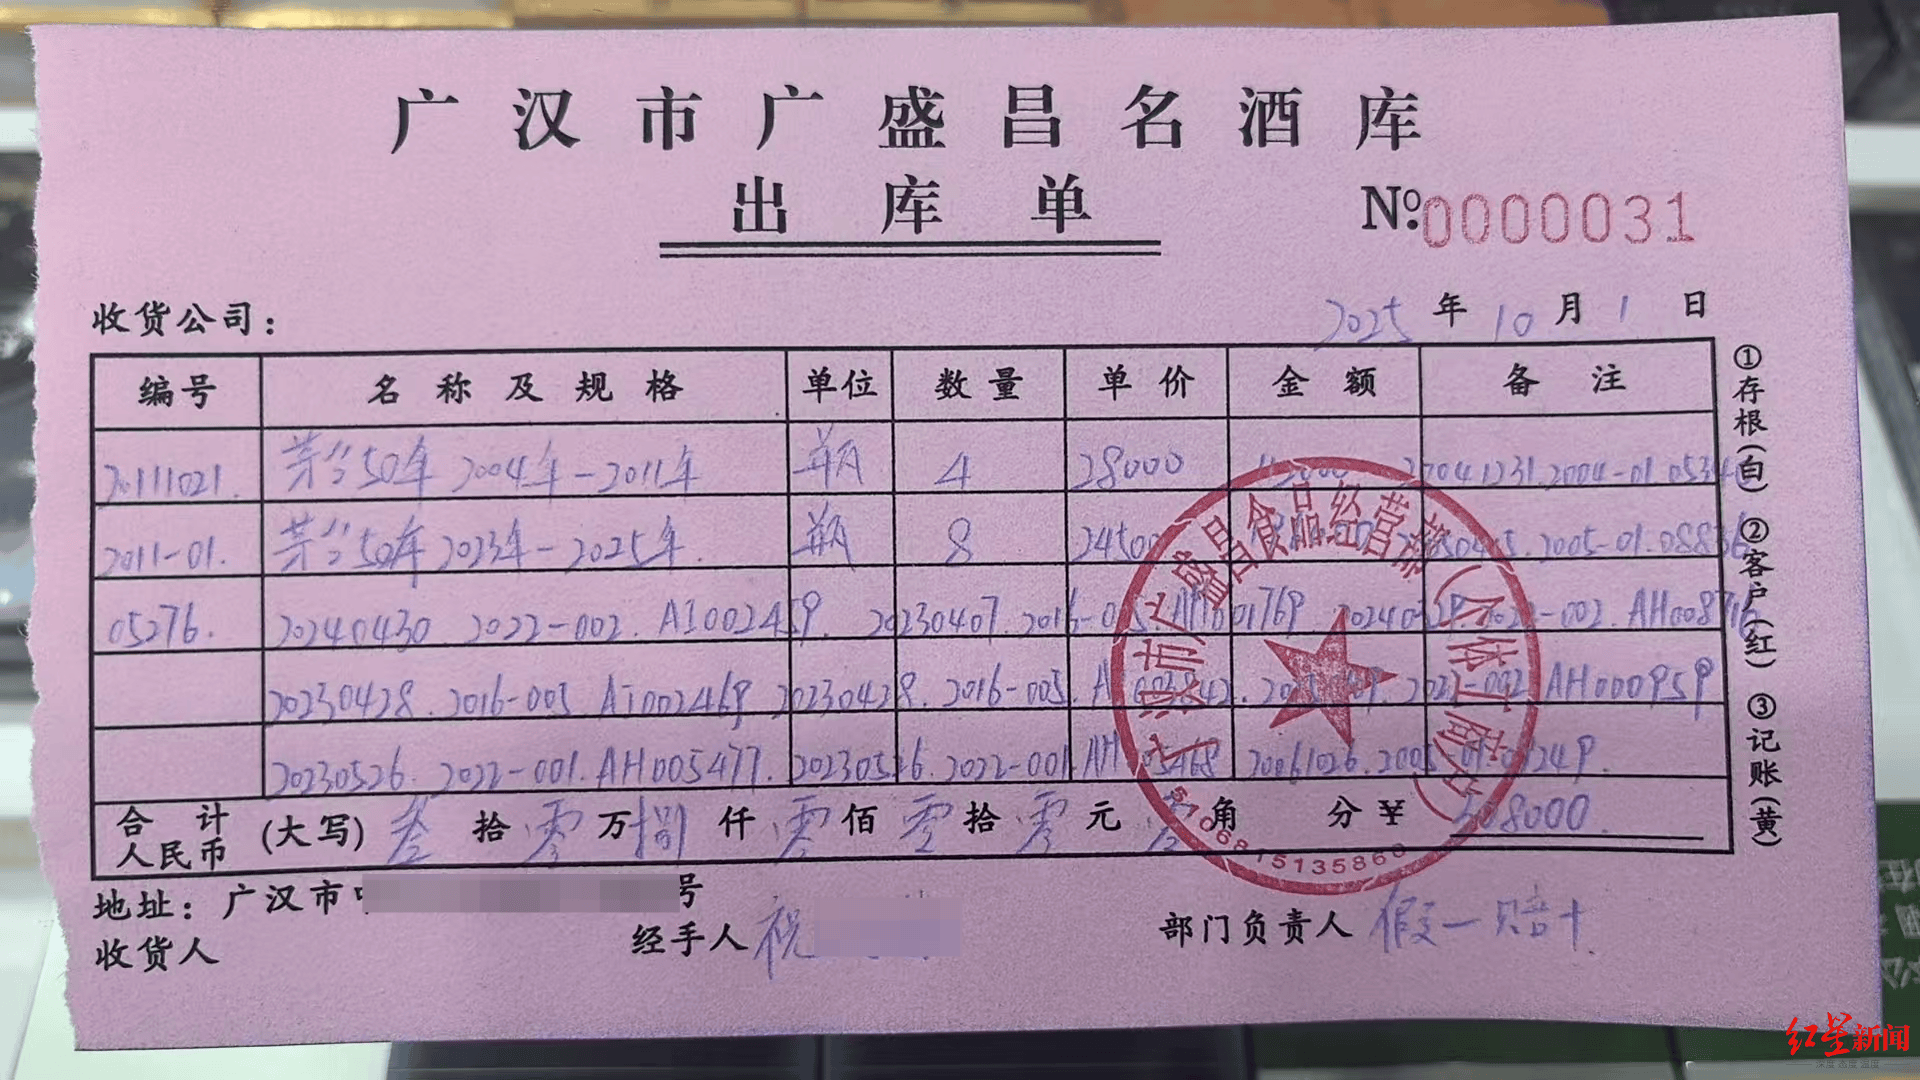 广汉市广盛昌名酒库
出库单
№:0000031
收货公司:
2025年10月1日
编号 名称及规格 单位 数量 单价 金额 备注
20111021. 茅台50年 2004年-2011年 瓶 4 28000 20041231.2004-01.05340
2011-01. 茅台50年 2023年-2025年. 瓶 8 24500 2005-01.08836
05276. 20240430 2022-002. AI002459. 20230407. 2016-005. AH001769. 2022-002. AH008716
20230428. 2016-005 AI002469 20230428. 2016-005. 2022-002 AH000959
20230526. 2022-001. AH005477. 20230526. 2022-001. AH005468 20061026.
合计人民币 (大写) 叁拾零万捌仟零佰零拾零元 角 分 ¥ 308000.
①存根(白) ②客户(红) ③记账(黄)
地址: 广汉市 号
收货人 经手人 祝 部门负责人 假一赔十
广汉市广盛昌食品经营部(个体工商户)
5106815135860
红星新闻